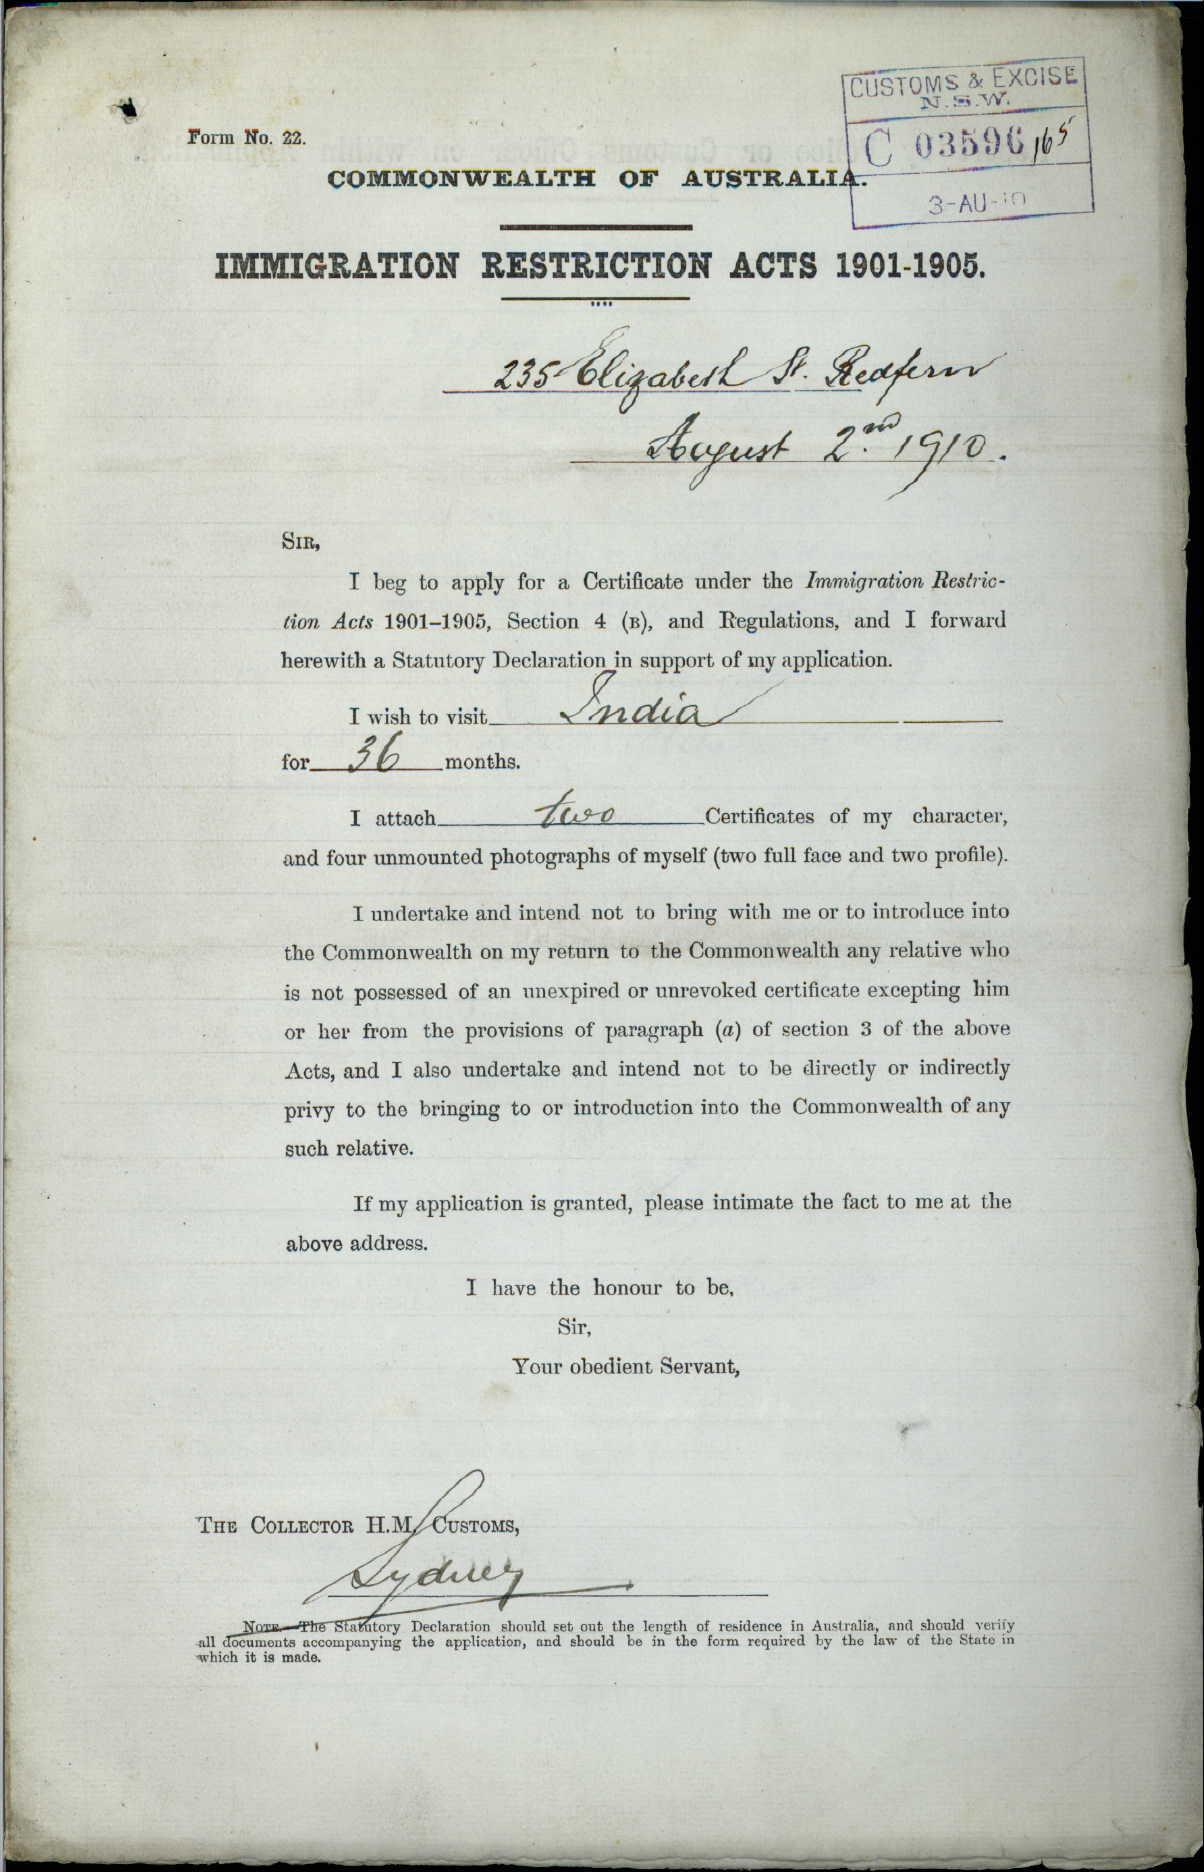 CUSTOMS & EXCISE
N.S.W.
C 03596
3-AU-10
Form No. 22.
COMMONWEALTH OF AUSTRALIA.
IMMIGRATION RESTRICTION ACTS 1901-1905.
235 Elizabeth St. Redfern
August 2nd. 1910.
SIR,
I beg to apply for a Certificate under the Immigration Restric-
tion Acts 1901–1905, Section 4 (B), and Regulations, and I forward
herewith a Statutory Declaration in support of my application.
I wish to visit India
for 36 months.
I attach two Certificates of my character,
and four unmounted photographs of myself (two full face and two profile).
I undertake and intend not to bring with me or to introduce into
the Commonwealth on my return to the Commonwealth any relative who
is not possessed of an unexpired or unrevoked certificate excepting him
or her from the provisions of paragraph (a) of section 3 of the above
Acts, and I also undertake and intend not to be directly or indirectly
privy to the bringing to or introduction into the Commonwealth of any
such relative.
If my application is granted, please intimate the fact to me at the
above address.
I have the honour to be,
Sir,
Your obedient Servant,
THE COLLECTOR H.M. CUSTOMS,
Sydney
NOTE.—The Statutory Declaration should set out the length of residence in Australia, and should verify
all documents accompanying the application, and should be in the form required by the law of the State in
which it is made.